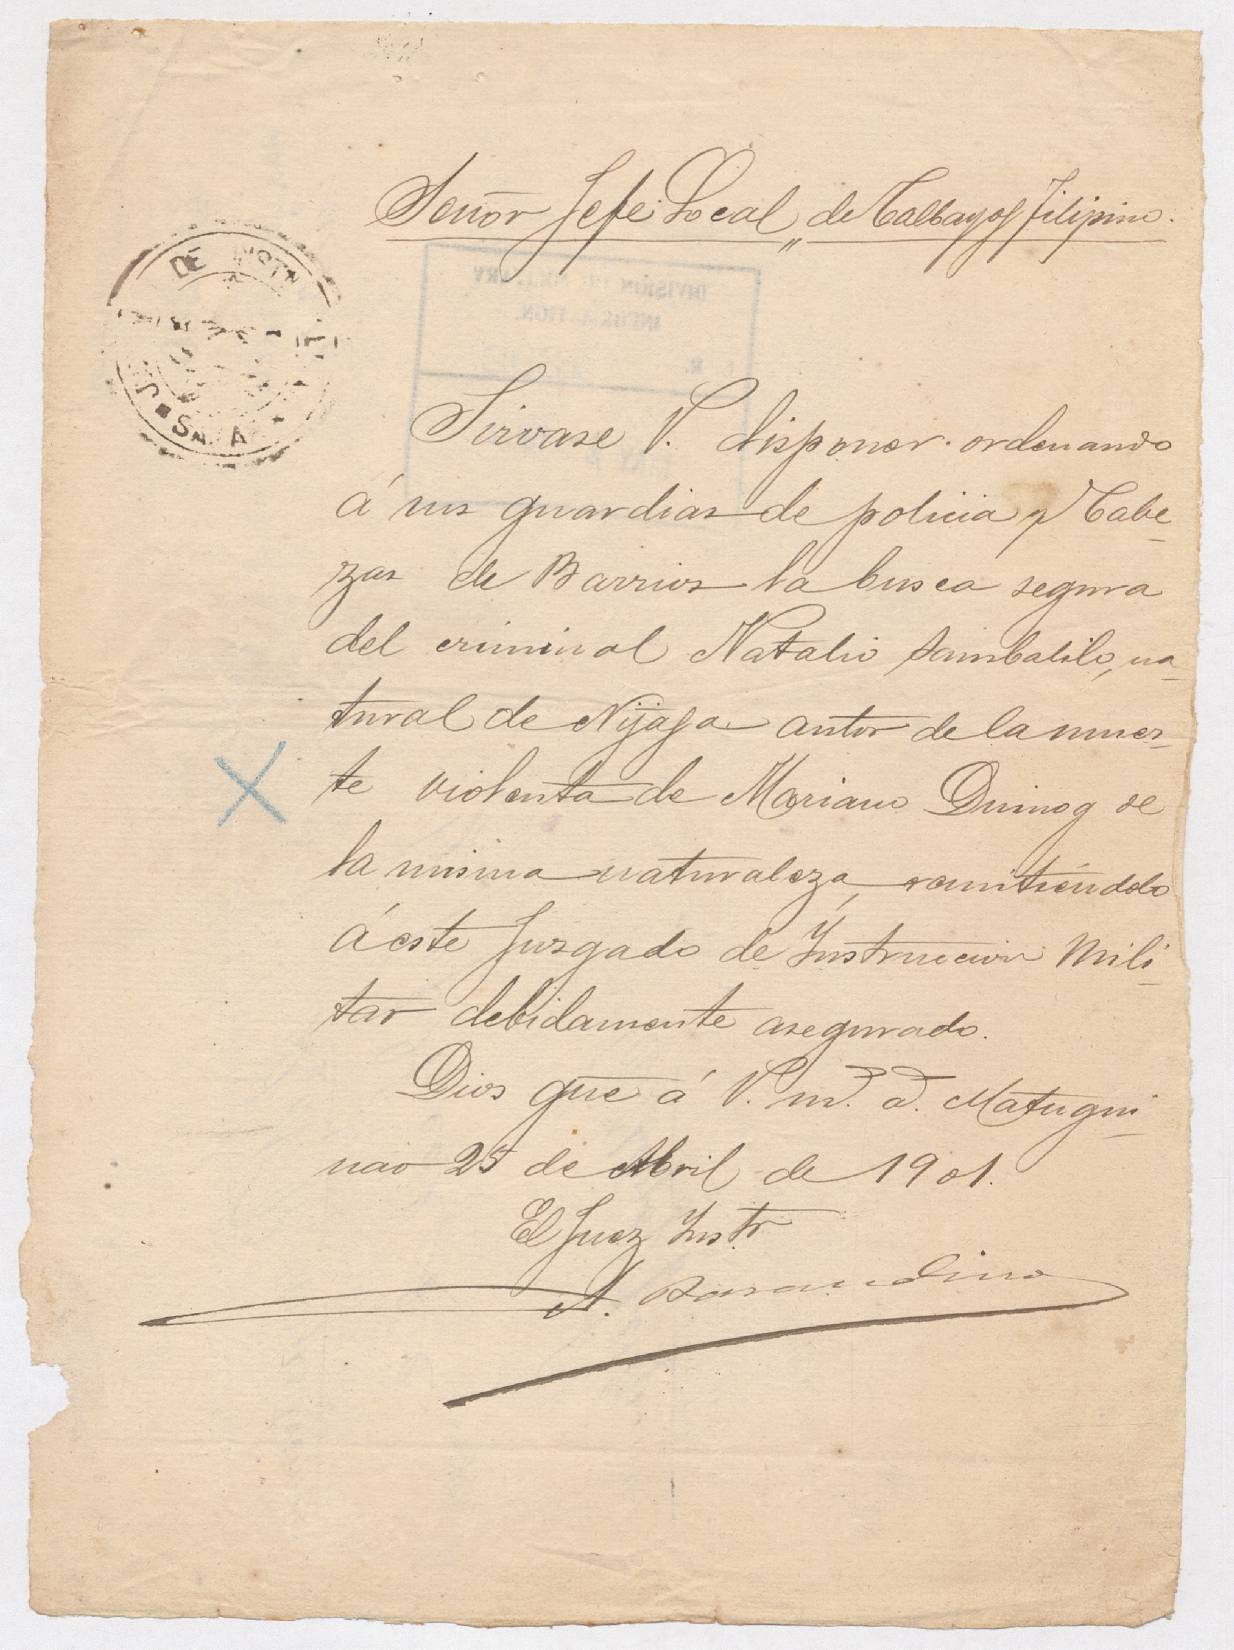 Señor Jefe Local, de Calbayog Filipino.
DE INSTR
SAMAR
DIVISION OF MILITARY
INFORMATION.
Sirvase V. disponer ordenando
á sus guardias de policia y Cabe-
zas de Barrios la busca segura
del criminal Natalio Sambalilo, na-
tural de Nijaga autor de la muer-
te violenta de Mariano Quinog de
la misma naturaleza, remitiéndolo
á este Juzgado de Instruccion Mili-
tar debidamente asegurado.
Dios gue á V. m. a. Matugui-
nao 25 de Abril de 1901.
El Juez Instr
A.